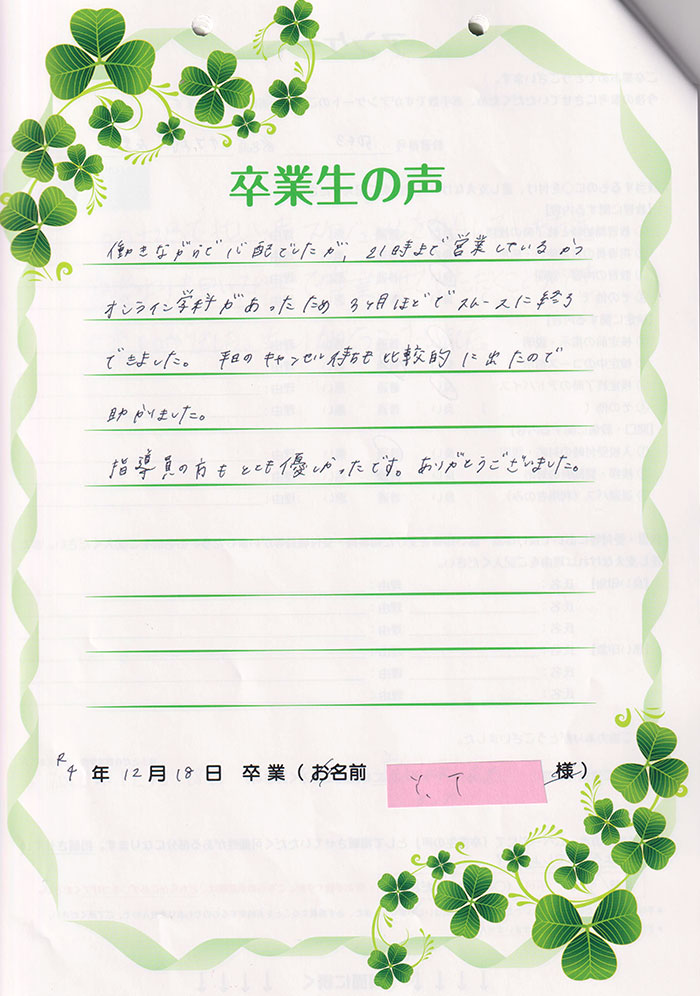 卒業生の声
働きながらで心配でしたが、21時まで営業しているかつ
オンライン学科があったため 3ヶ月ほどでスムースに終る
できました。 平日のキャンセル待ちも比較的に出たので
助かりました。
指導員の方もとても優しかったです。ありがとうございました。
R4年12月18日 卒業(お名前 Y.T 様)